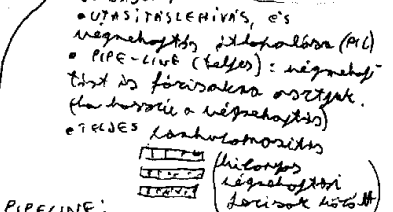 • UTASITÁSLEHIVÁS, és
végrehajtás átlapolása (PIC)
• PIPE-LINE (teljes): végrehaj-
tást is fázisokra osztjuk.
(ha hosszú a végrehajtás)
• TELJES
végrehajtási
fázisok között
PIPELINE: